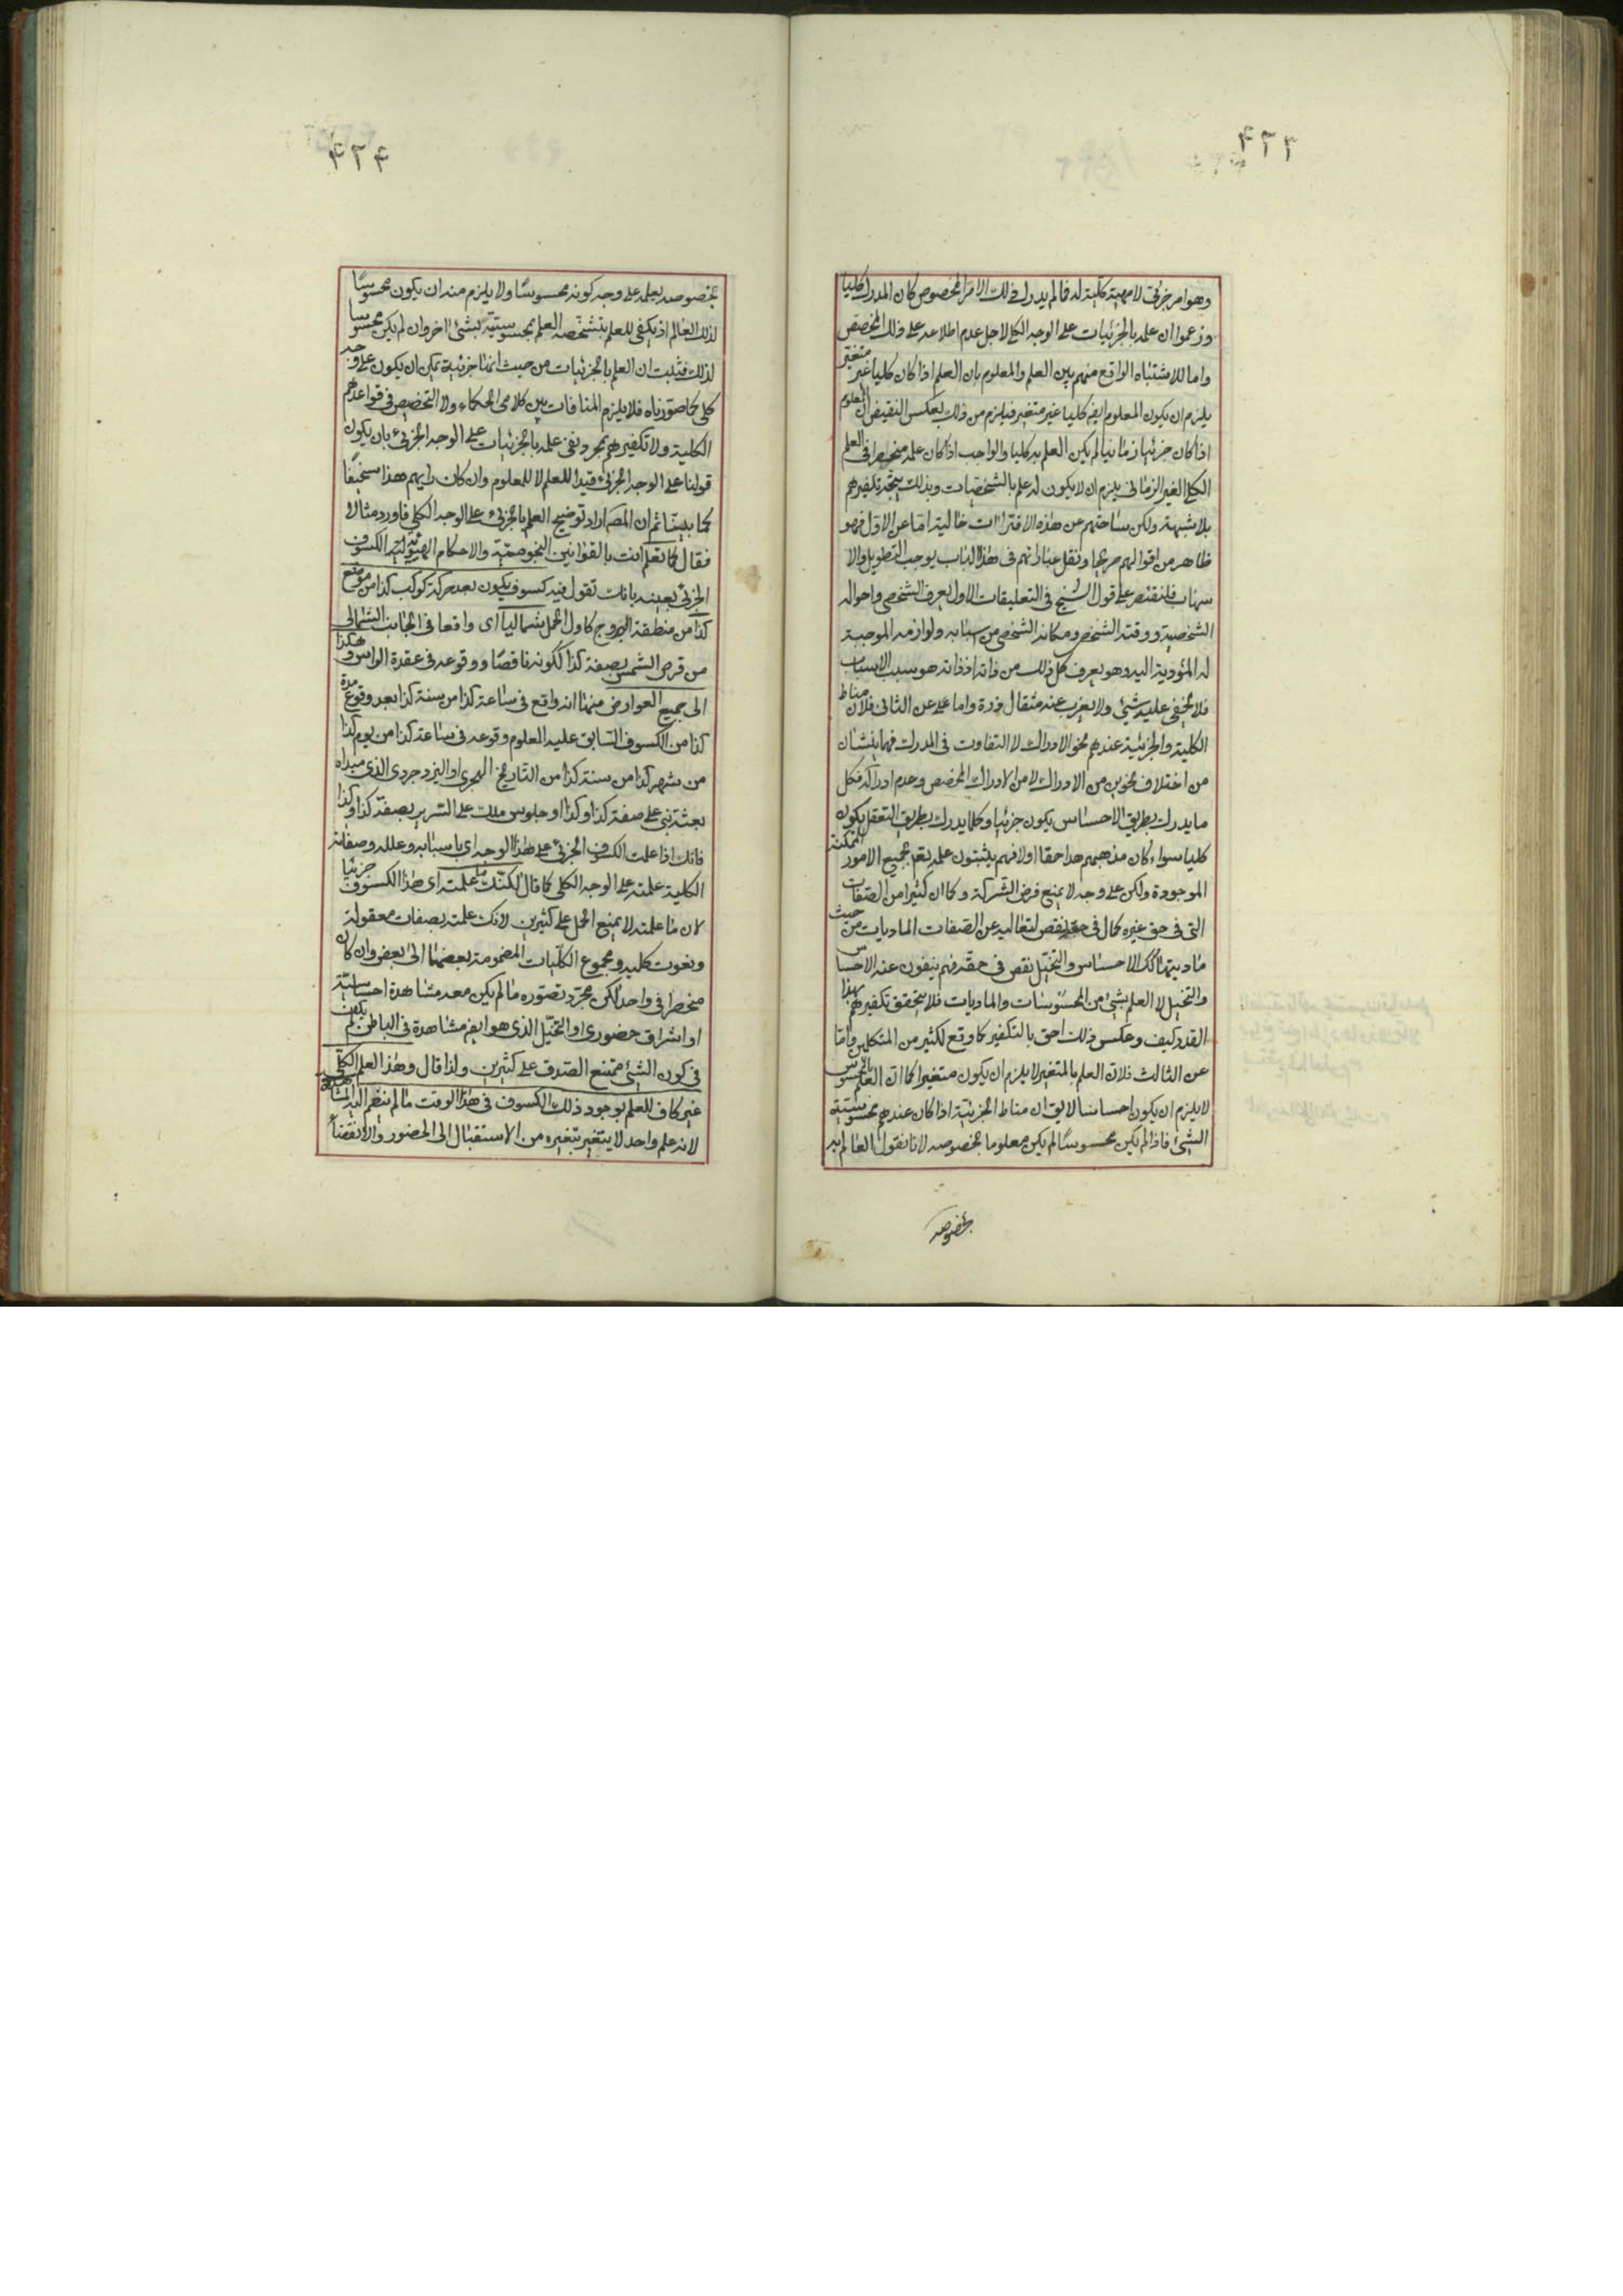 ٤٣٣
وهو امر جزئى لا مهية كلية له فما لم يدرك ذلك الامر المخصوص كان المدرك كليا
وزعموا ان علمه بالجزئيات على الوجه الكلى لاجل عدم اطلاعه على ذلك المخصص
واما للاشتباه الواقع منهم بين العلم والمعلوم بان العلم اذا كان كليا غير متغير
يلزم ان يكون المعلوم ايضا كليا غير متغير فيلزم من ذلك بعكس النقيض ان المعلوم
اذا كان جزئيا زمانيا لم يكن العلم به كليا والواجب اذا كان علمه منحصرا فى العلم
الكلى الغير الزمانى يلزم ان لا يكون له علم بالشخصيات وبذلك يتجه تكفيرهم
بلا شبهة ولكن ساحتهم عن هذه الافتراات خالية اما عن الاول فهو
ظاهر من اقوالهم صريحا ونقل عباراتهم فى هذا الباب يوجب التطويل والا
سهاب فلنقتصر على قول الشيخ فى التعليقات الاول يعرف الشخص واحواله
الشخصية ووقته الشخص ومكانه الشخصى من اسبابه ولوازمه الموجبة
له المؤدية اليه وهو يعرف كل ذلك من ذاته اذ ذاته هو سبب الاسباب
فلا يخفى عليه شيئ ولا يعزب عنه مثقال ذرة واما على عن الثانى فلان مناط
الكلية والجزئية عندهم نحو الادراك لا التفاوت فى المدرك فهما ينشان
من اختلاف نحوين من الادراك لا من الادراك المخصص وعدم ادراكه فكل
ما يدرك بطريق الاحساس يكون جزئيا وكلما يدرك بطريق التعقل يكون
كليا سواء كان مذهبهم هذا حقا اولا فهم يثبتون علمه تعم بجميع الامور الممكنة
الموجودة ولكن على وجه لا يمنع فرض الشركة وكما ان كثيرا من الصفات
التى فى حق غيره كمال فى حقه نقص لتعاليه عن الصفات الماديات من حيث
ماديتها كك الاحساس والتخيل نقص فى حقه فهم ينفون عنه الاحساس
والتخيل لا العلم بشئ من المحسوسات والماديات فلا يتحقق تكفيرهم بهذا
القدر كيف وعكس ذلك احق بالتكفير كما وقع لكثير من المتكلمين واما
عن الثالث فلان العلم بالمتغير لا يلزم ان يكون متغيرا كما ان العلم بالمحسوس
لا يلزم ان يكون احساسا لا يق ان مناط الجزئية اذا كان عندهم محسوسية
الشئ فاذا لم يكن محسوسا لم يكن معلوما بخصوصه لانا نقول العالم به
بخصوصه
٤٣٤
بخصوصه يعلمه على وجه كونه محسوسا ولا يلزم منه ان يكون محسوسا
لذلك العالم اذ يكفى للعلم بتشخصه العلم بمحسوسيته بشئ اخر وان لم يكن محسوسا
لذلك فثبت ان العلم بالجزئيات من حيث انها جزئية يمكن ان يكون على وجه
كلى كما صورناه فلا يلزم المنافات بين كلامى الحكماء ولا التخصيص فى قواعدهم
الكلية ولا تكفيرهم بمجرد نفى علمه بالجزئيات على الوجه الجزئى بان يكون
قولنا على الوجه الجزئى قيدا للعلم لا للمعلوم وان كان رايهم هذا سخيفا
كما بينا ثم ان المصم اراد توضيح العلم بالجزئى على الوجه الكلى فاورد مثالا
فقال كما تعلم انت بالقوانين النجوميّة والاحكام الهيوية الكسوف
الجزئى بعينه بانك تقول فيه كسوف يكون بعد حركة كوكب كذا من موضع
كذا من منطقة البروج كاول الحمل شماليا اى واقعا فى الجانب الشمالى
من قرص الشمس بصفة كذا ككونه ناقصا ووقوعه فى عقدة الراس وهكذا
الى جميع العوارض منها انه واقع فى ساعة كذا من سنة كذا بعد وقوع مدة
كذا من الكسوف السابق عليه المعلوم وقوعه فى ساعة كذا من يوم كذا
من شهر كذا من سنة كذا من التاريخ الهجرى او اليزدجردى الذى مبداه
بعثة نبى على صفة كذا وكذا او جلوس ملك على السرير بصفة كذا وكذا
فانك اذا علمت الكسوف الجزئى على هذا الوجه اى باسبابه وعلله وصفاته
الكلية علمته على الوجه الكلى كما قال لكنك ما علمته اى هذا الكسوف جزئيا
لان ما علمته لا يمنع الحمل على كثيرين لانك علمته بصفات معقولة
ونعوت كلية ومجموع الكليات المضمومة بعضها الى بعض وان كان
منحصرا فى واحد لكن مجرد تصوره ما لم يكن معه مشاهدة احساسية
او اشراق حضورى او التخيل الذى هو ايضا مشاهدة فى الباطن لم يكف
فى كون الشئ ممتنع الصدق على كثيرين ولذا قال وهذا العلم الكلى
غير كاف للعلم بوجود ذلك الكسوف فى هذا الوقت ما لم ينظم اليه المشاهدة
لانه علم واحد لا يتغير بتغيره من الاستقبال الى الحضور والانقضاء